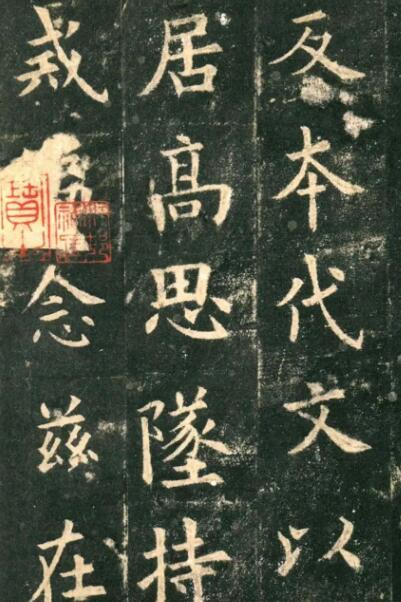 反本代文以
居高思墜持
戒念茲在